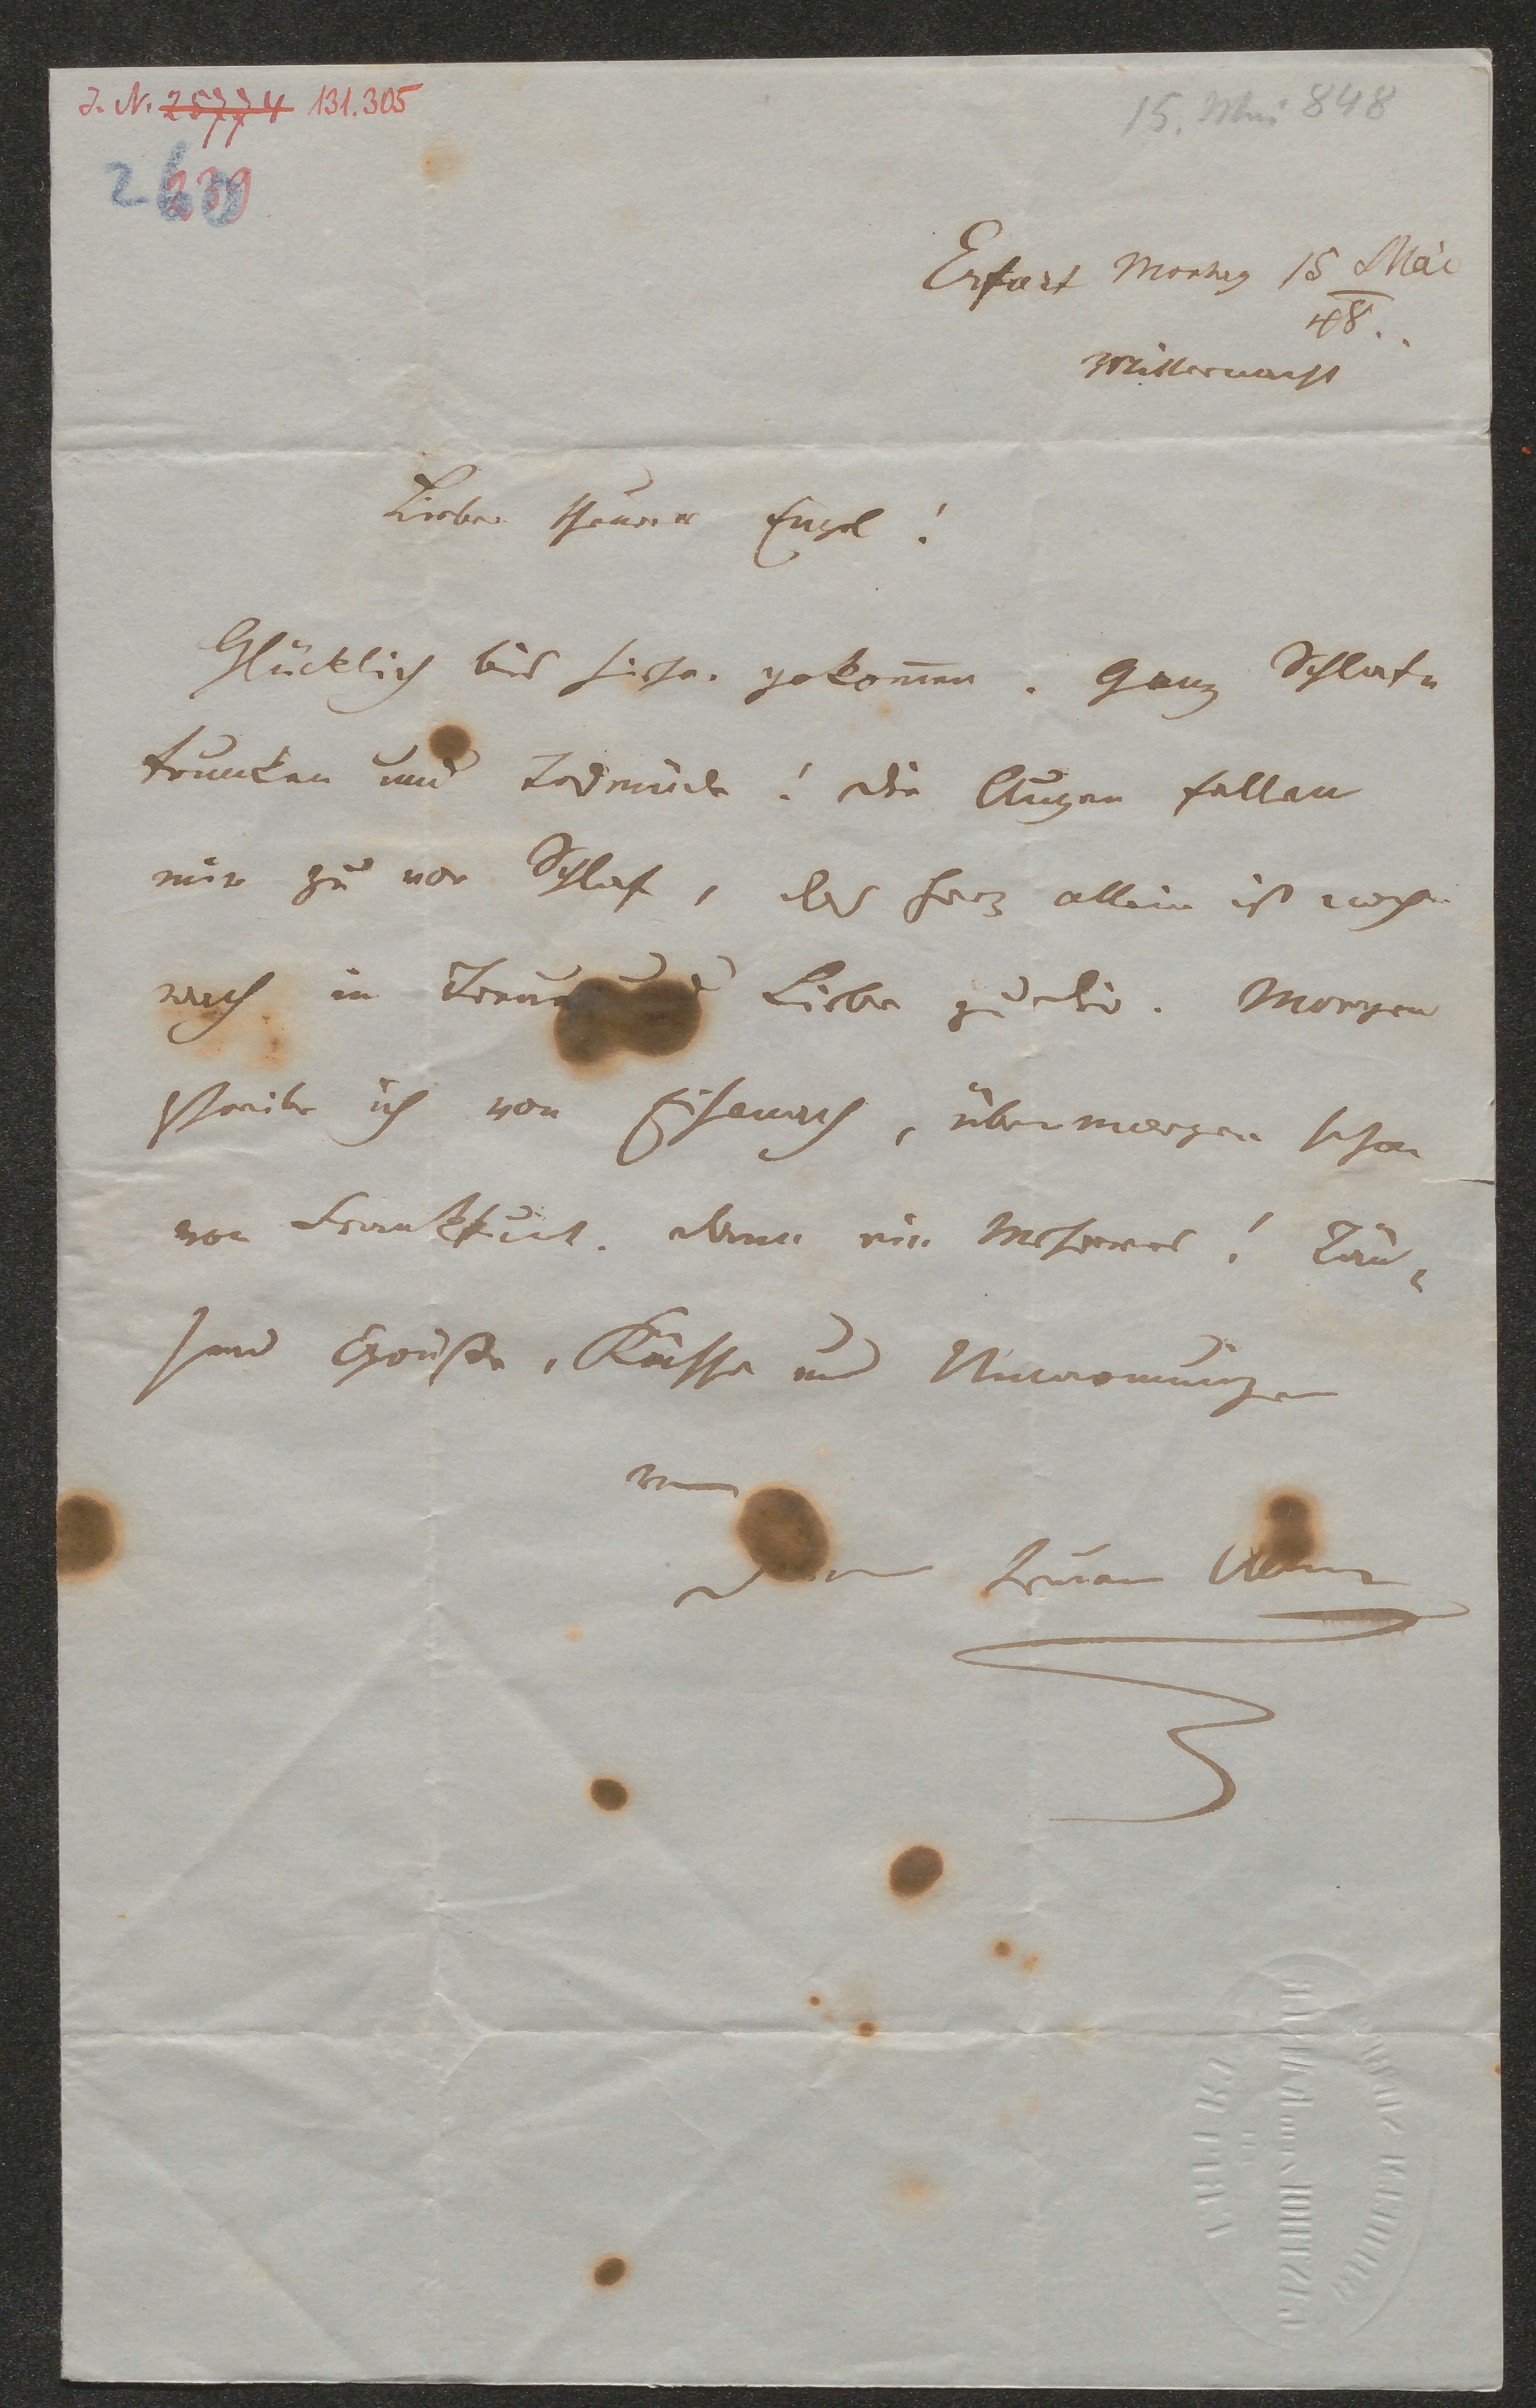 J. N. 25774 131.305
15. Mai 848
239
Erfurt Montag 15 Mai
48..
Mitternacht
Lieber theurer Engel!
Glücklich bis hieher gekom̄en. Ganz Schlaf-
trunken und todmüde! Die Augen fallen
mir zu vor Schlaf, das Herz allein ist noch
wach in Treue und Liebe zu dir. Morgen
schreibe ich von Eisenach, übermorgen schon
von Frankfurt. Dann ein Mehreres! Tau-
send Grüße, Küsse und Umarmungen
von
Deinem treuen